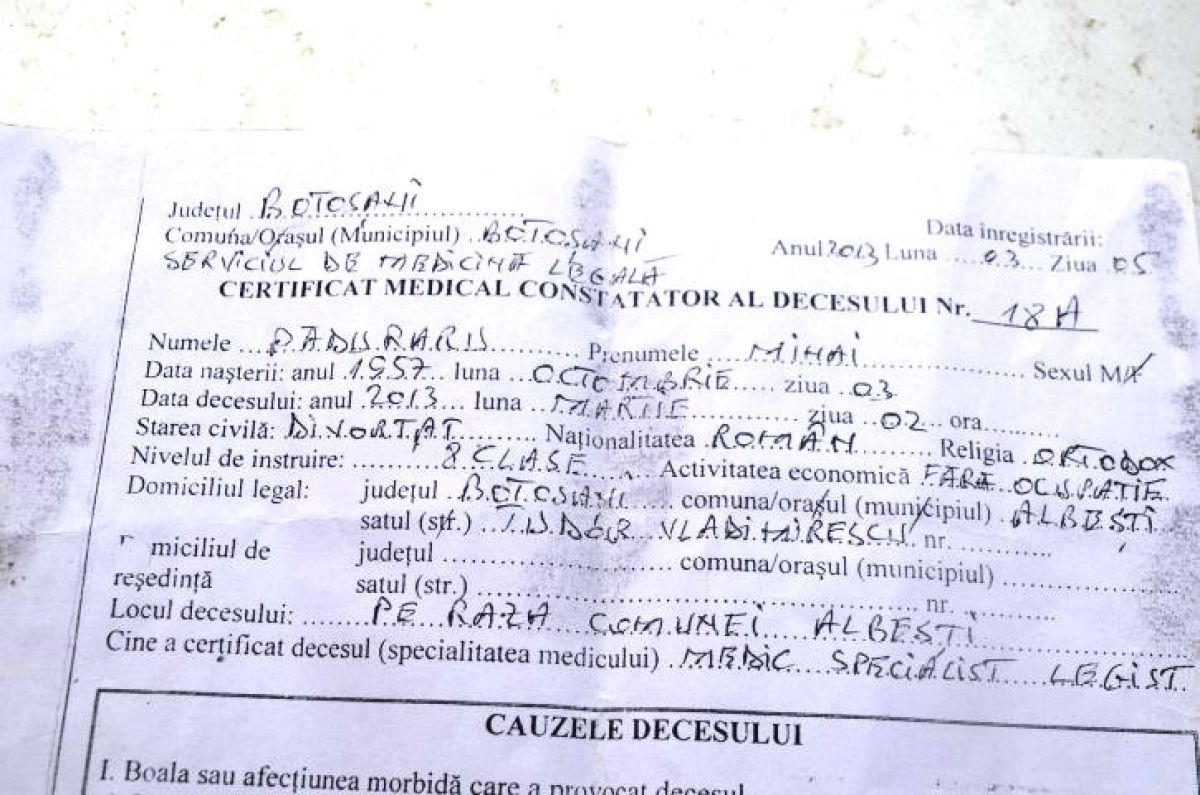 Județul BOTOȘANI
Comuna/Orașul (Municipiul) BOTOȘANI
Data înregistrării:
Anul 2013 Luna 03 Ziua 05
SERVICIUL DE MEDICINĂ LEGALĂ
CERTIFICAT MEDICAL CONSTATATOR AL DECESULUI Nr. 18A
Numele PĂDURARU Prenumele MIHAI Sexul M/F
Data nașterii: anul 1957 luna OCTOMBRIE ziua 03
Data decesului: anul 2013 luna MARTIE ziua 02 ora
Starea civilă: DIVORȚAT Naționalitatea ROMÂN Religia ORTODOX
Nivelul de instruire: 8 CLASE Activitatea economică FĂRĂ OCUPAȚIE
Domiciliul legal: județul BOTOȘANI comuna/orașul (municipiul) ALBEȘTI
satul (str.) TUDOR VLADIMIRESCU nr.
miciliul de județul comuna/orașul (municipiul)
reședință satul (str.) nr.
Locul decesului: PE RAZA COMUNEI ALBEȘTI
Cine a certificat decesul (specialitatea medicului) MEDIC SPECIALIST LEGIST
CAUZELE DECESULUI
I. Boala sau afecțiunea morbidă care a provocat decesul